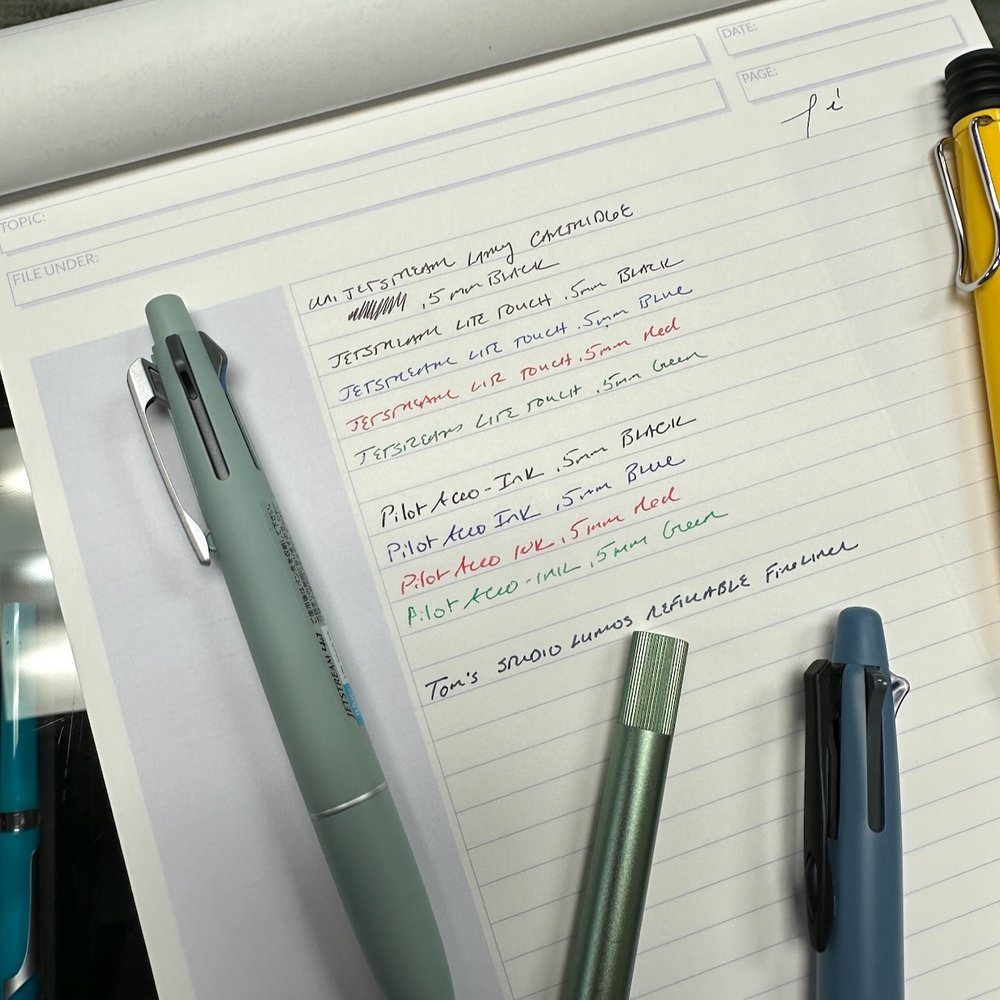 DATE:
PAGE:
TOPIC:
FILE UNDER:
UNI JETSTREAM LAMY CARTRIDGE
.5mm BLACK
JETSTREAM LITE TOUCH .5mm BLACK
JETSTREAM LITE TOUCH .5mm BLUE
JETSTREAM LITE TOUCH .5mm Red
JETSTREAM LITE TOUCH .5mm Green
Pilot Acro-Ink .5mm BLACK
Pilot Acro Ink .5mm Blue
Pilot Acro INK .5mm Red
Pilot Acro-INK .5mm Green
Tom's STUDIO LUMOS REFILLABLE FINELINER
JETSTREAM 4&1